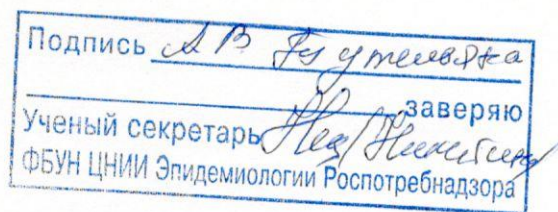 Подпись А В
заверяю
Ученый секретарь
ФБУН ЦНИИ Эпидемиологии Роспотребнадзора